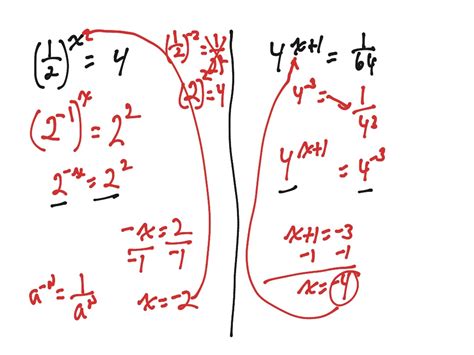 (1/2)^x = 4
(1/2)^-2 = 1/
(2)^2 = 4
(2^-1)^x = 2^2
2^-x = 2^2
-x = 2
-1 -1
x = -2
a^-N = 1/a^N
4^x+1 = 1/64
4^-3 = 1/4^3
4^x+1 = 4^-3
x+1 = -3
-1 -1
x = -4